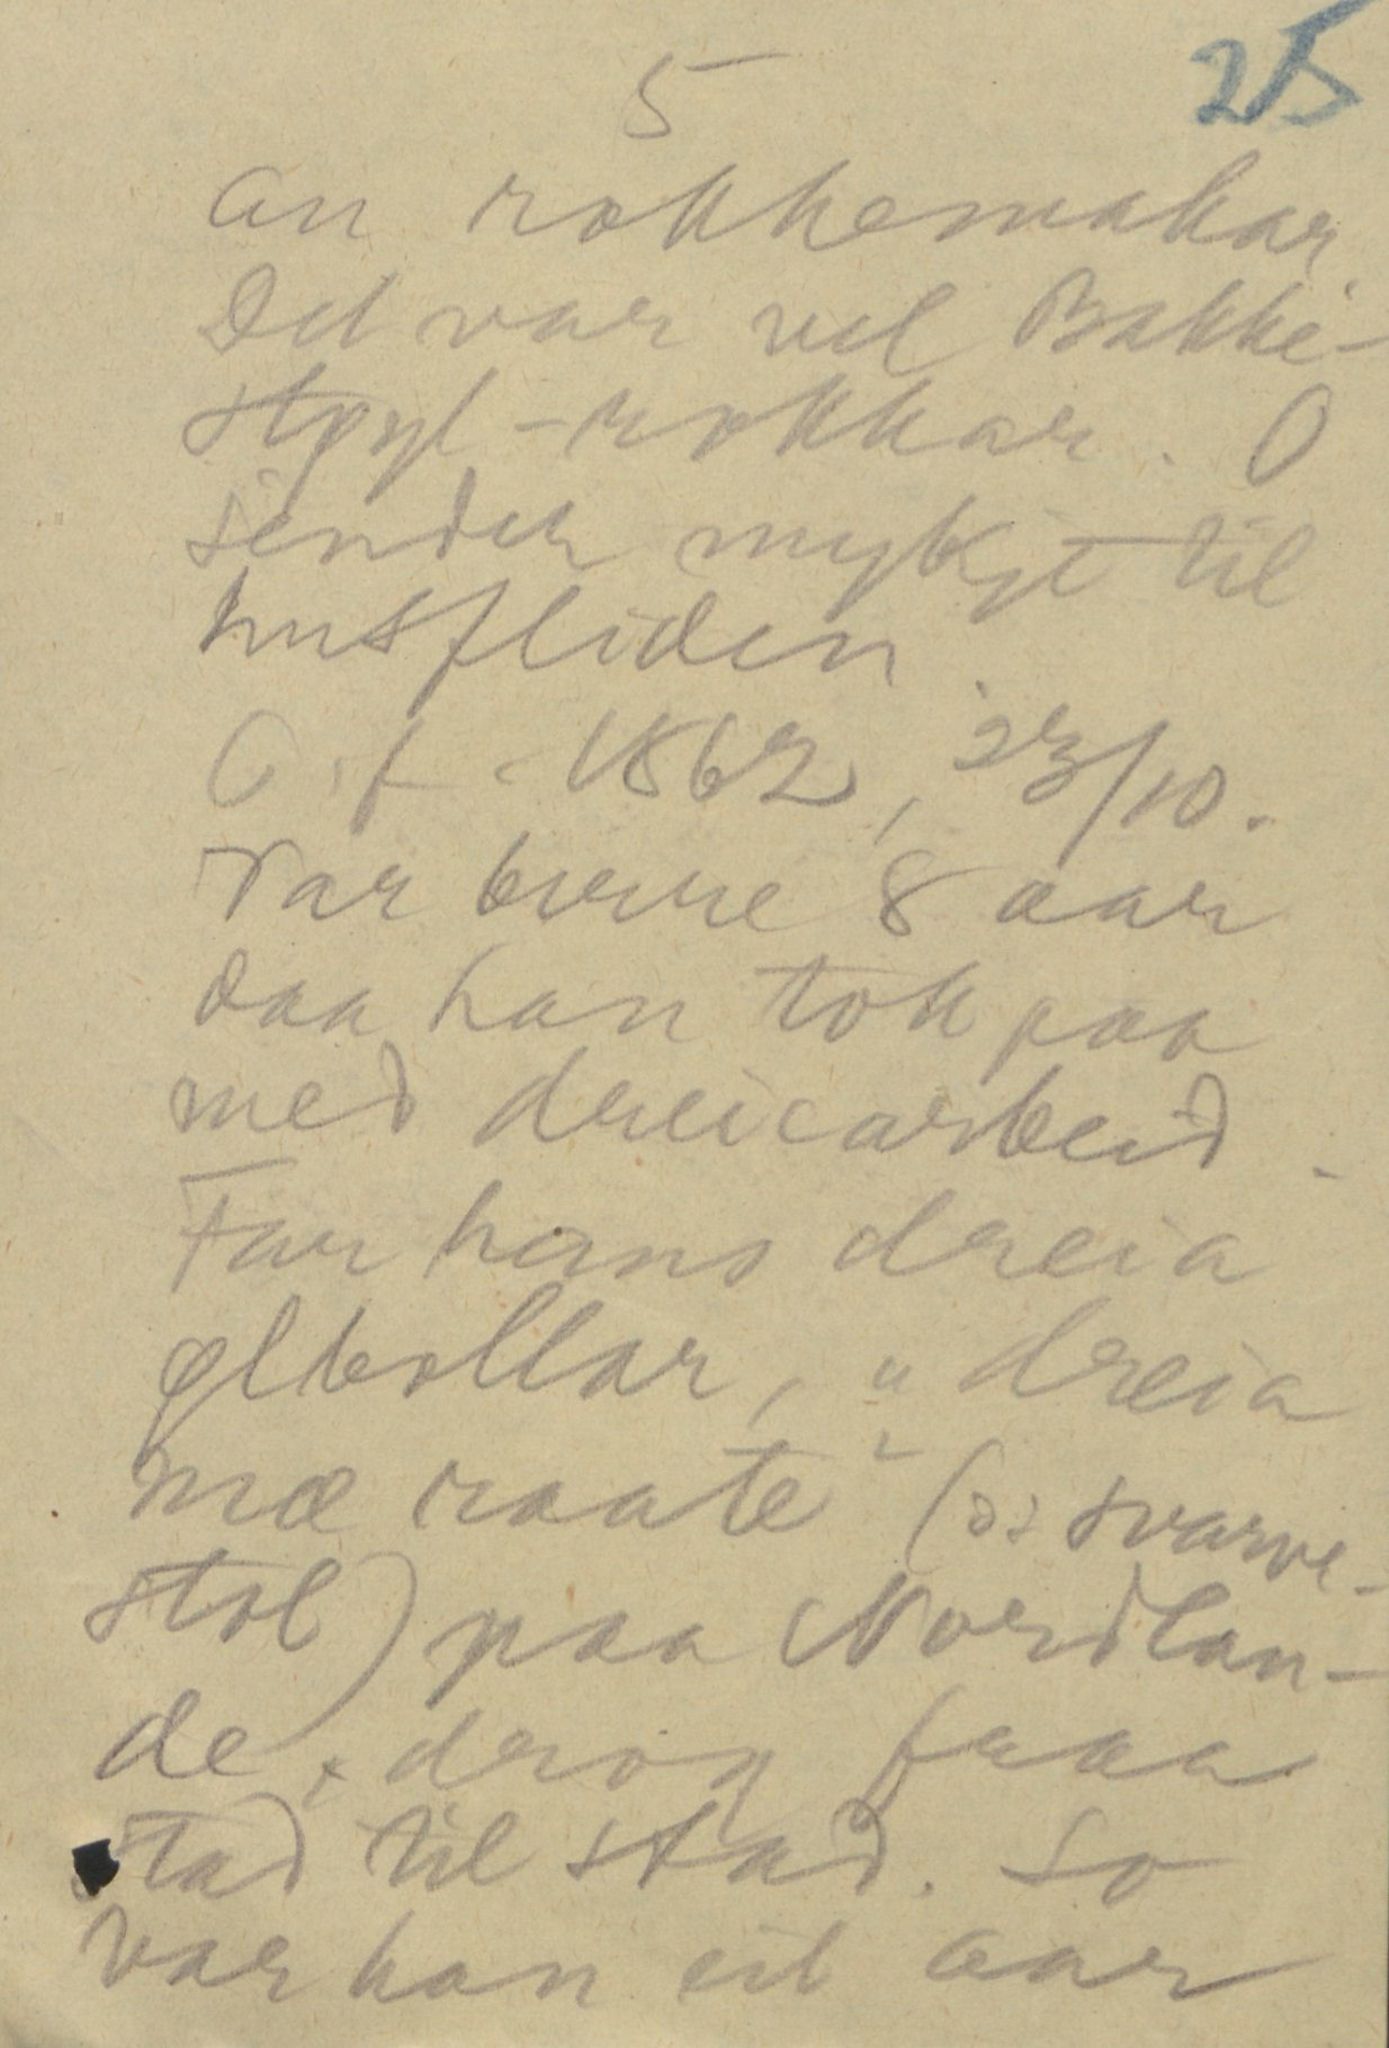 5 25
an rokkemakar.
Det var vel Bakke-
støyl-rokkar. O
sender mykje til
husfliden.
O. f. 1862, 23/10.
Var berre 8 aar
daa han tok paa
med dreiearbeid.
Far hans dreia
ølbollar, "dreia
mæ raate" (ɔ: svarve-
stol) paa Nordlan-
de, drog fraa
stad til stad. So
var han eit aar